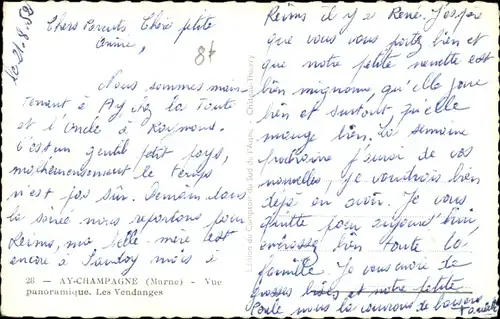 le 21.8.58
Chers Parents Chère petite
Annie,
87
Nous sommes main
tenant à Ay, chez la Tante
et l'Oncle à Raymond.
C'est un gentil petit pays,
malheureusement le temps
n'est pas sûr. Demain dans
la soirée nous repartons pour
Reims, ma belle-mère est
encore à mais à
28 — AY-CHAMPAGNE (Marne) - Vue
panoramique. Les Vendanges
Editions du Comptoir du Sud de l'Aisne, Château-Thierry
Reims il y a René. J'espère
que vous vous portez bien et
que notre petite nenette est
bien mignonne, qu'elle joue
bien et surtout, qu'elle
mange bien. La semaine
prochaine j'aurai de vos
nouvelles, je voudrais bien
déjà en avoir. Je vous
quitte pour aujourd'hui
embrassez bien toute la
famille. Je vous envoie de
grosses bises et notre petite
Paule nous la couvrons de baisers